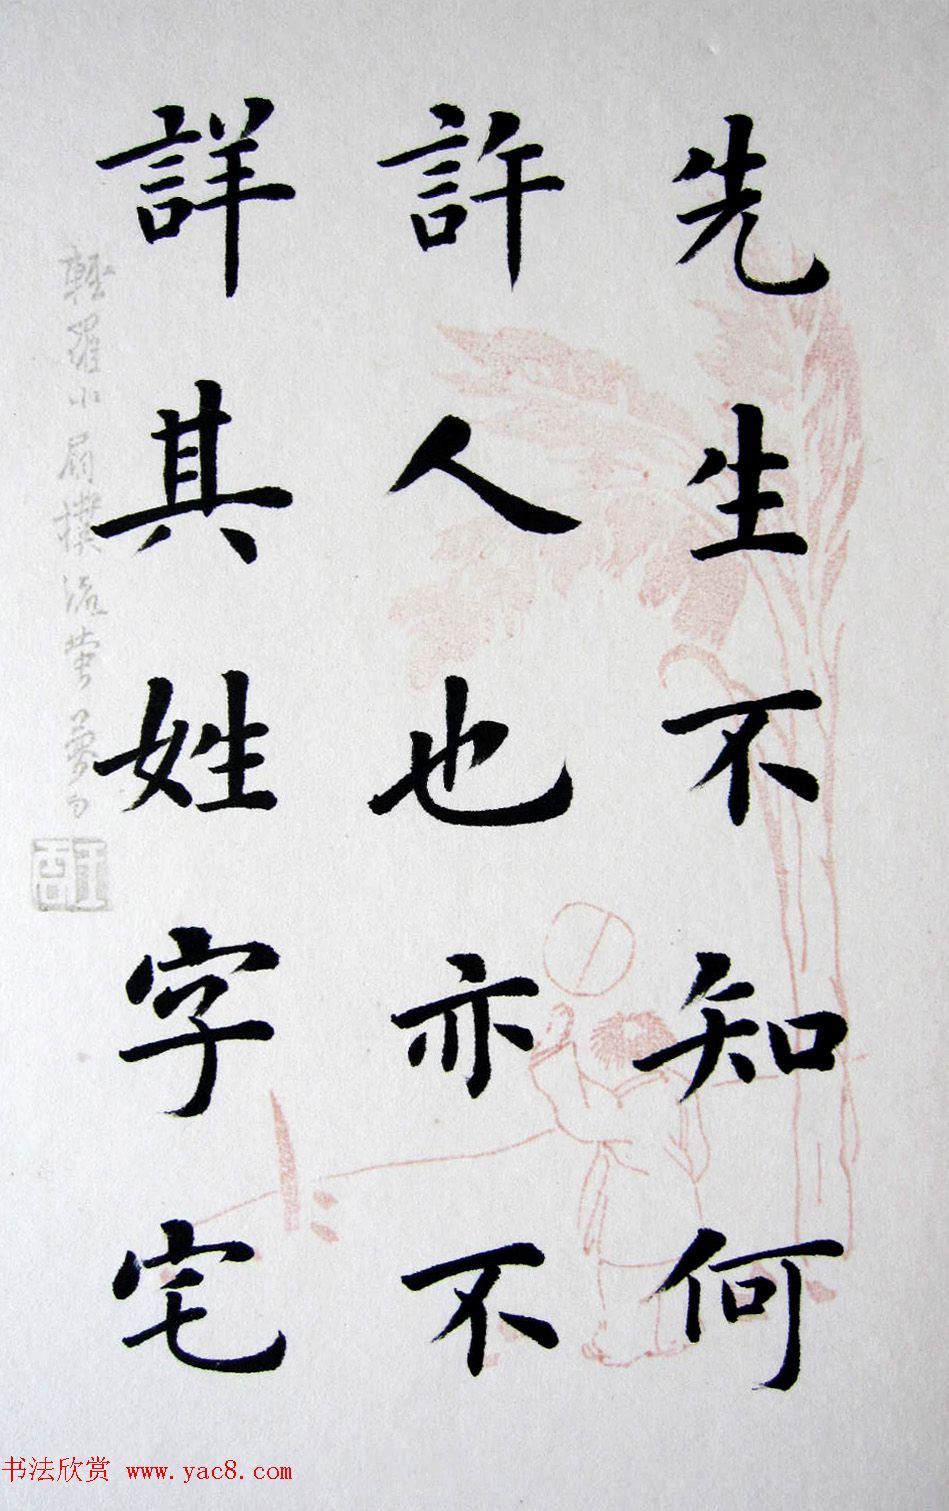 先生不知何
許人也亦不
詳其姓字宅
輕羅小扇撲流螢
书法欣赏 www.yac8.com